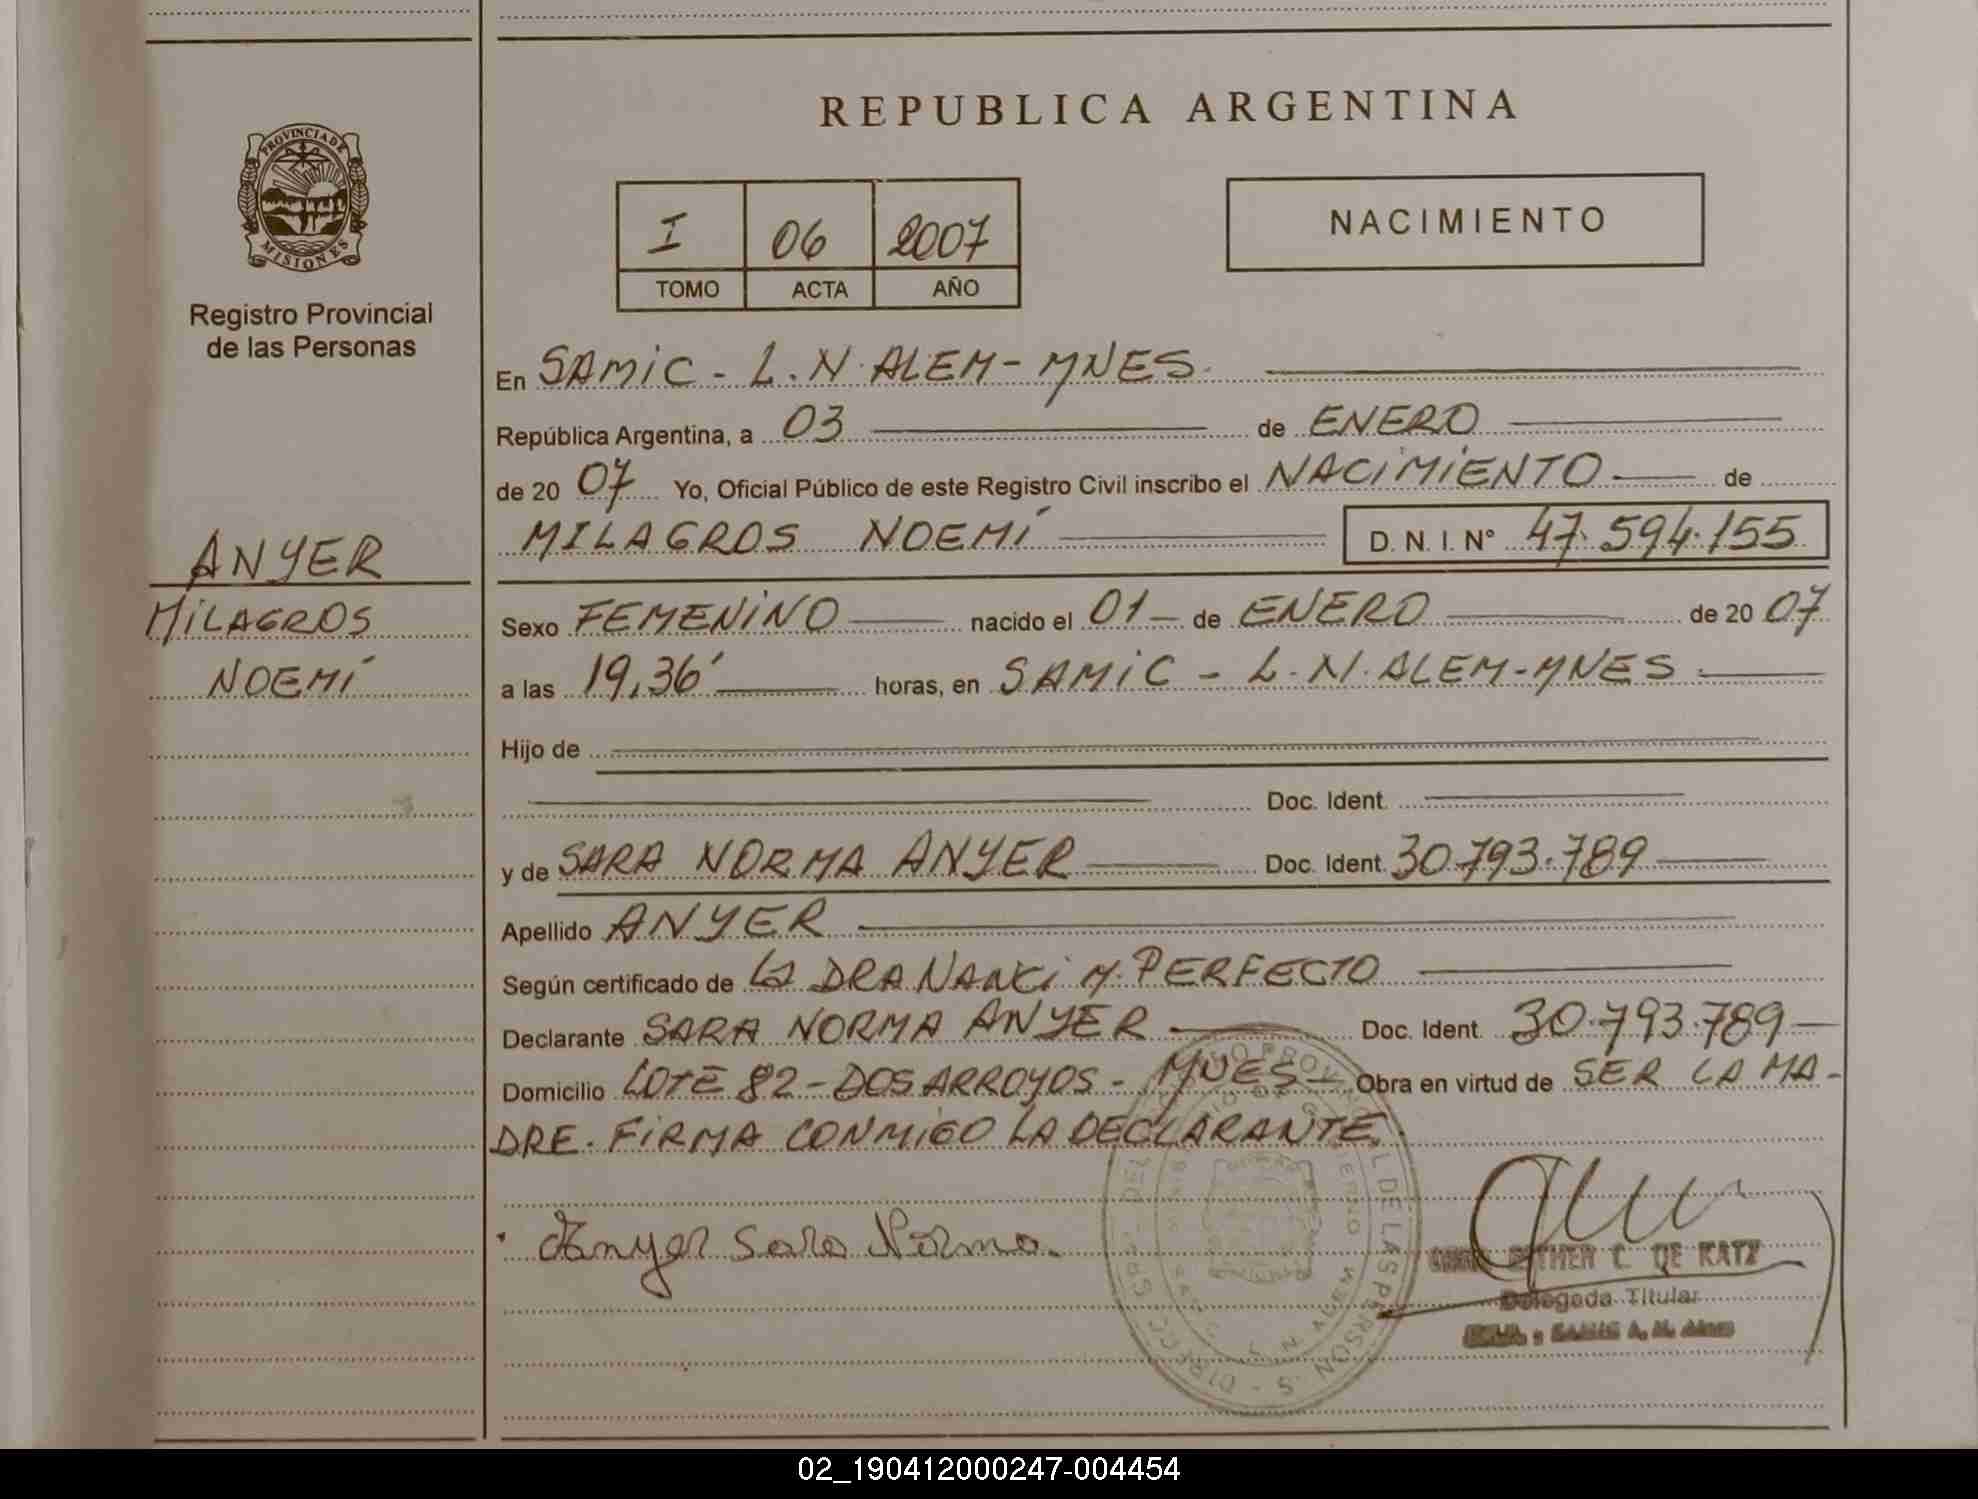 REPUBLICA ARGENTINA
PROVINCIA DE
MISIONES
Registro Provincial
de las Personas
I 06 2007
TOMO ACTA AÑO
NACIMIENTO
En SAMIC - L.N. ALEM - MNES.
República Argentina, a 03 de ENERO
de 20 07 Yo, Oficial Público de este Registro Civil inscribo el NACIMIENTO de
MILAGROS NOEMÍ D. N. I. N° 47.594.155
ANYER
MILAGROS
NOEMÍ
Sexo FEMENINO nacido el 01 de ENERO de 20 07
a las 19,36' horas, en SAMIC - L.N. ALEM - MNES
Hijo de
Doc. Ident.
y de SARA NORMA ANYER Doc. Ident. 30.793.789
Apellido ANYER
Según certificado de La DRA NANCI M. PERFECTO
Declarante SARA NORMA ANYER Doc. Ident. 30.793.789
Domicilio LOTE 82 - DOS ARROYOS - MNES Obra en virtud de SER LA MA-
DRE. FIRMA CONMIGO LA DECLARANTE.
Anyer Sara Norma.
ESTHER C. DE KATZ
Delegada Titular
02_190412000247-004454